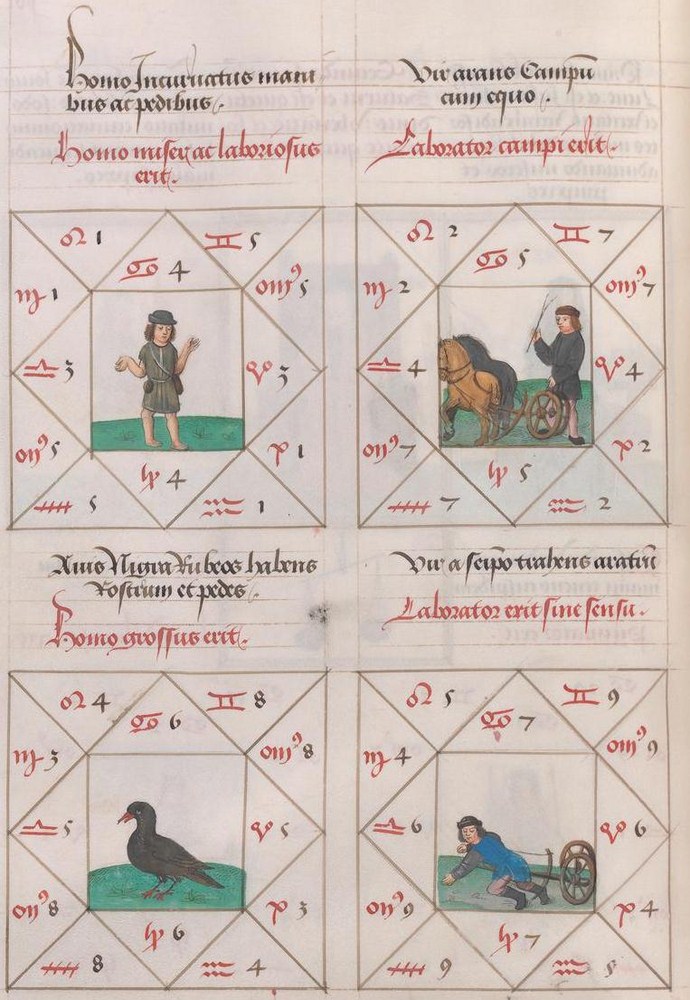 Homo Incuruatus mani
bus ac pedibus.
Homo miser ac laboriosus
erit.
♌ 1
♊ 5
♋ 4
♍ 1
om⁹ 5
♎ 3
♈ 3
om⁹ 5
p 1
♑ 4
5
♒ 1
Vir arans Campū
cum equo.
Laborator campi erit.
♌ 2
♊ 7
♋ 5
♍ 2
om⁹ 7
♎ 4
♈ 4
om⁹ 7
p 2
♑ 5
7
♒ 2
Auis Nigra Rubeos habens
Rostrum et pedes.
Homo grossus erit.
♌ 4
♊ 8
♋ 6
♍ 3
om⁹ 8
♎ 5
♈ 5
om⁹ 8
p 3
♑ 6
8
♒ 4
Vir a seipo trahens aratrū
Laborator erit sine sensu.
♌ 5
♊ 9
♋ 7
♍ 4
om⁹ 9
♎ 6
♈ 6
om⁹ 9
p 4
♑ 7
9
♒ 5